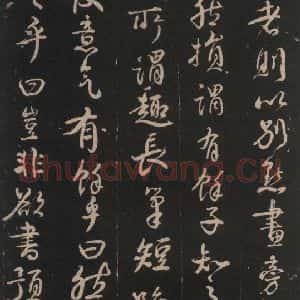 者則以別點畫旁
然損謂有餘子知之
所謂趣長筆短
意氣有餘乎曰然
乎曰豈非欲書預
Shufawang.CN